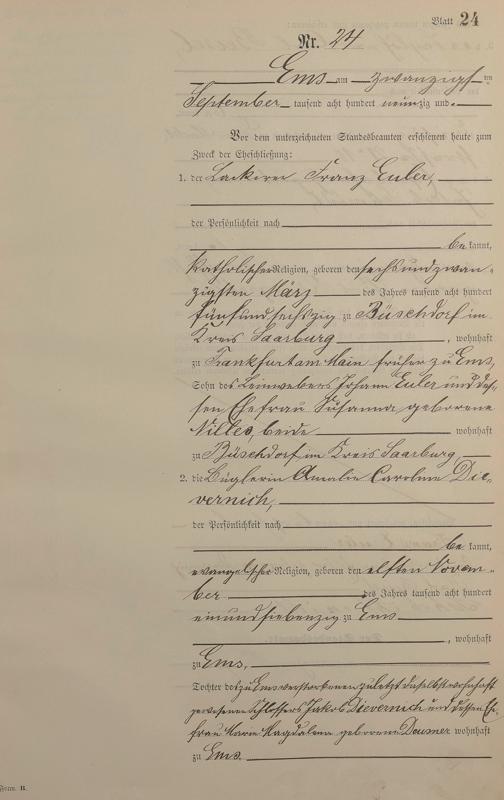 Blatt 24
Nr. 24
Ems am zwanzigsten
September tausend acht hundert neunzig und
Vor dem unterzeichneten Standesbeamten erschienen heute zum
Zweck der Eheschließung:
1. der Lackierer Franz Euler,
der Persönlichkeit nach
be kannt,
katholischer Religion, geboren den sechsundzwan-
zigsten März des Jahres tausend acht hundert
fünfundsechszig zu Büschdorf im
Kreis Saarburg, wohnhaft
zu Frankfurt am Main früher zu Ems,
Sohn des Leinwebers Johann Euler und des-
sen Ehefrau Susanna geborene
Nilles, beide wohnhaft
zu Büschdorf im Kreis Saarburg,
2. die Büglerin Amalie Carolina Die-
vernich,
der Persönlichkeit nach
be kannt,
evangelischer Religion, geboren den elften Novem-
ber des Jahres tausend acht hundert
einundsiebenzig zu Ems
, wohnhaft
zu Ems,
Tochter des zu Ems verstorbenen zuletzt daselbst wohnhaft
gewesenen Schlossers Jakob Dievernich und dessen Ehe-
frau Marie Magdalena geborene Deusner wohnhaft
zu Ems.
Form. B.